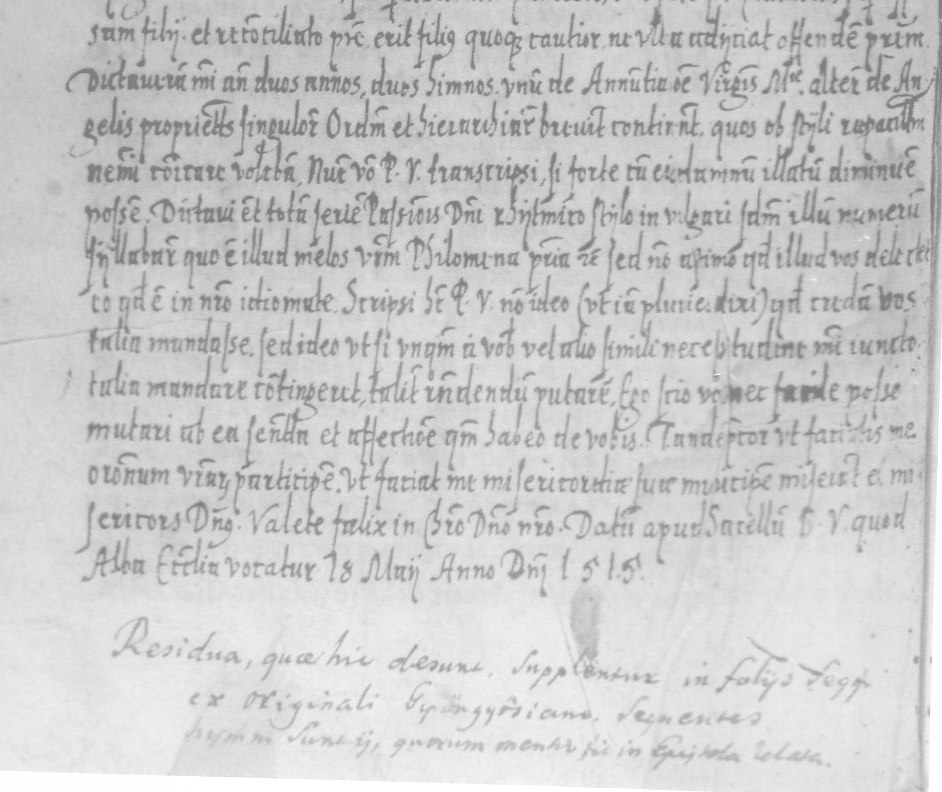 suum filij. et reco͠tiliato pr̃e, erit filiꝰ quoqꝫ cautior, ne vlla adijciat offendẽ prim̃.
Dictaverã mi͠ an̄ duos annos, duos himnos. vnũ de Annu͠tiaõe Virgis̃ M̃e. alter̃ de An
gelis propriet̃ts singulor̃ Ordm̃ et hierarchiar̃ brevit̃ contine͠t. quos ob stýli
nemi͠ co͠itare volebã, Nuc̃ vo͠ P. V. transcripsi, si forte cũ eis damnũ illatũ diminuẽ
possẽ. Dictavi e͠t totã seriẽ Passiõis Dn͠i rhýtmico stýlo in vulgari sdm̃ illũ numerũ
sýllabar̃ quo ẽ illud melos vrm̃ Philomena p͠ria etc̃ sed no͠ estimo qd̃ illud vos delectet
eo qd̃ ẽ in nr̃o idiomate. Scripsi hẽ P. V. no͠ ideo (vt iã plurie. dixi) qd̃ credã vos
talia mandasse, sed ideo vt si vnqm̃ a vob̃ vel alio simili necessitudine mi͠ iuncto.
talia mandare co͠tingeret, talit̃ rn͠dendũ putarẽ, Ego scio vo nec facile posse
mutari ab ea sen͠tia et affectiõe qm̃ habeo de vobis. Tandẽ p̃cor vt faciatis me
oro͠num vrãr participẽ. Vt faciat me misericordiæ suæ municipẽ miseric͠t et mi
sericors Dn͠s. Valete fælix in Chro͠ Dn͠o nr̃o. Datũ apud Sacellũ B. V. quod
Alba Eccl̃ia vocatur 18 Maij Anno Dn͠j 1515.
Residua, quæ hic desunt, supplentur in folijs seqq.
ex originali Gyöngyösiano. Sequentes
hymni sunt ij, quorum mentio fit in Epistola relata.